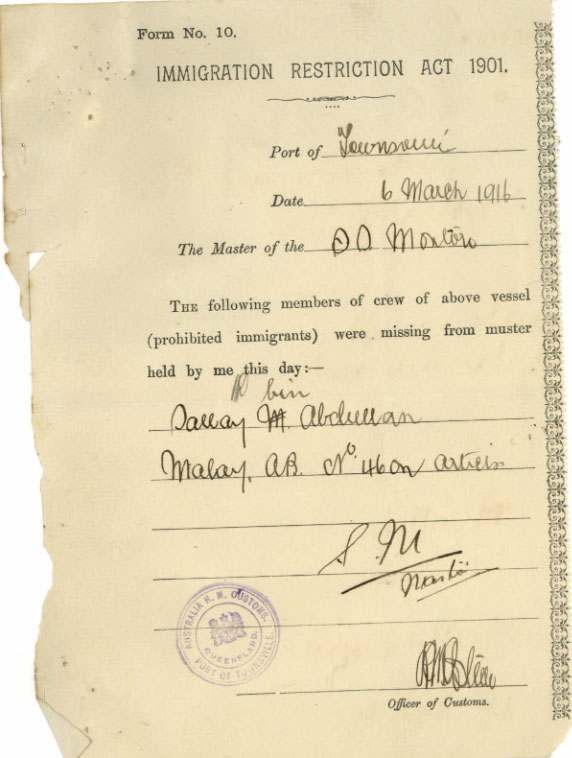 Form No. 10.
IMMIGRATION RESTRICTION ACT 1901.
Port of Townsville
Date 6 March 1916
The Master of the SS Montoro
THE following members of crew of above vessel
(prohibited immigrants) were missing from muster
held by me this day:—
bin
Abdullah
Malay, AB. No. 46 on articles
Master
AUSTRALIA H. M. CUSTOMS.
QUEENSLAND.
PORT OF TOWNSVILLE.
Officer of Customs.